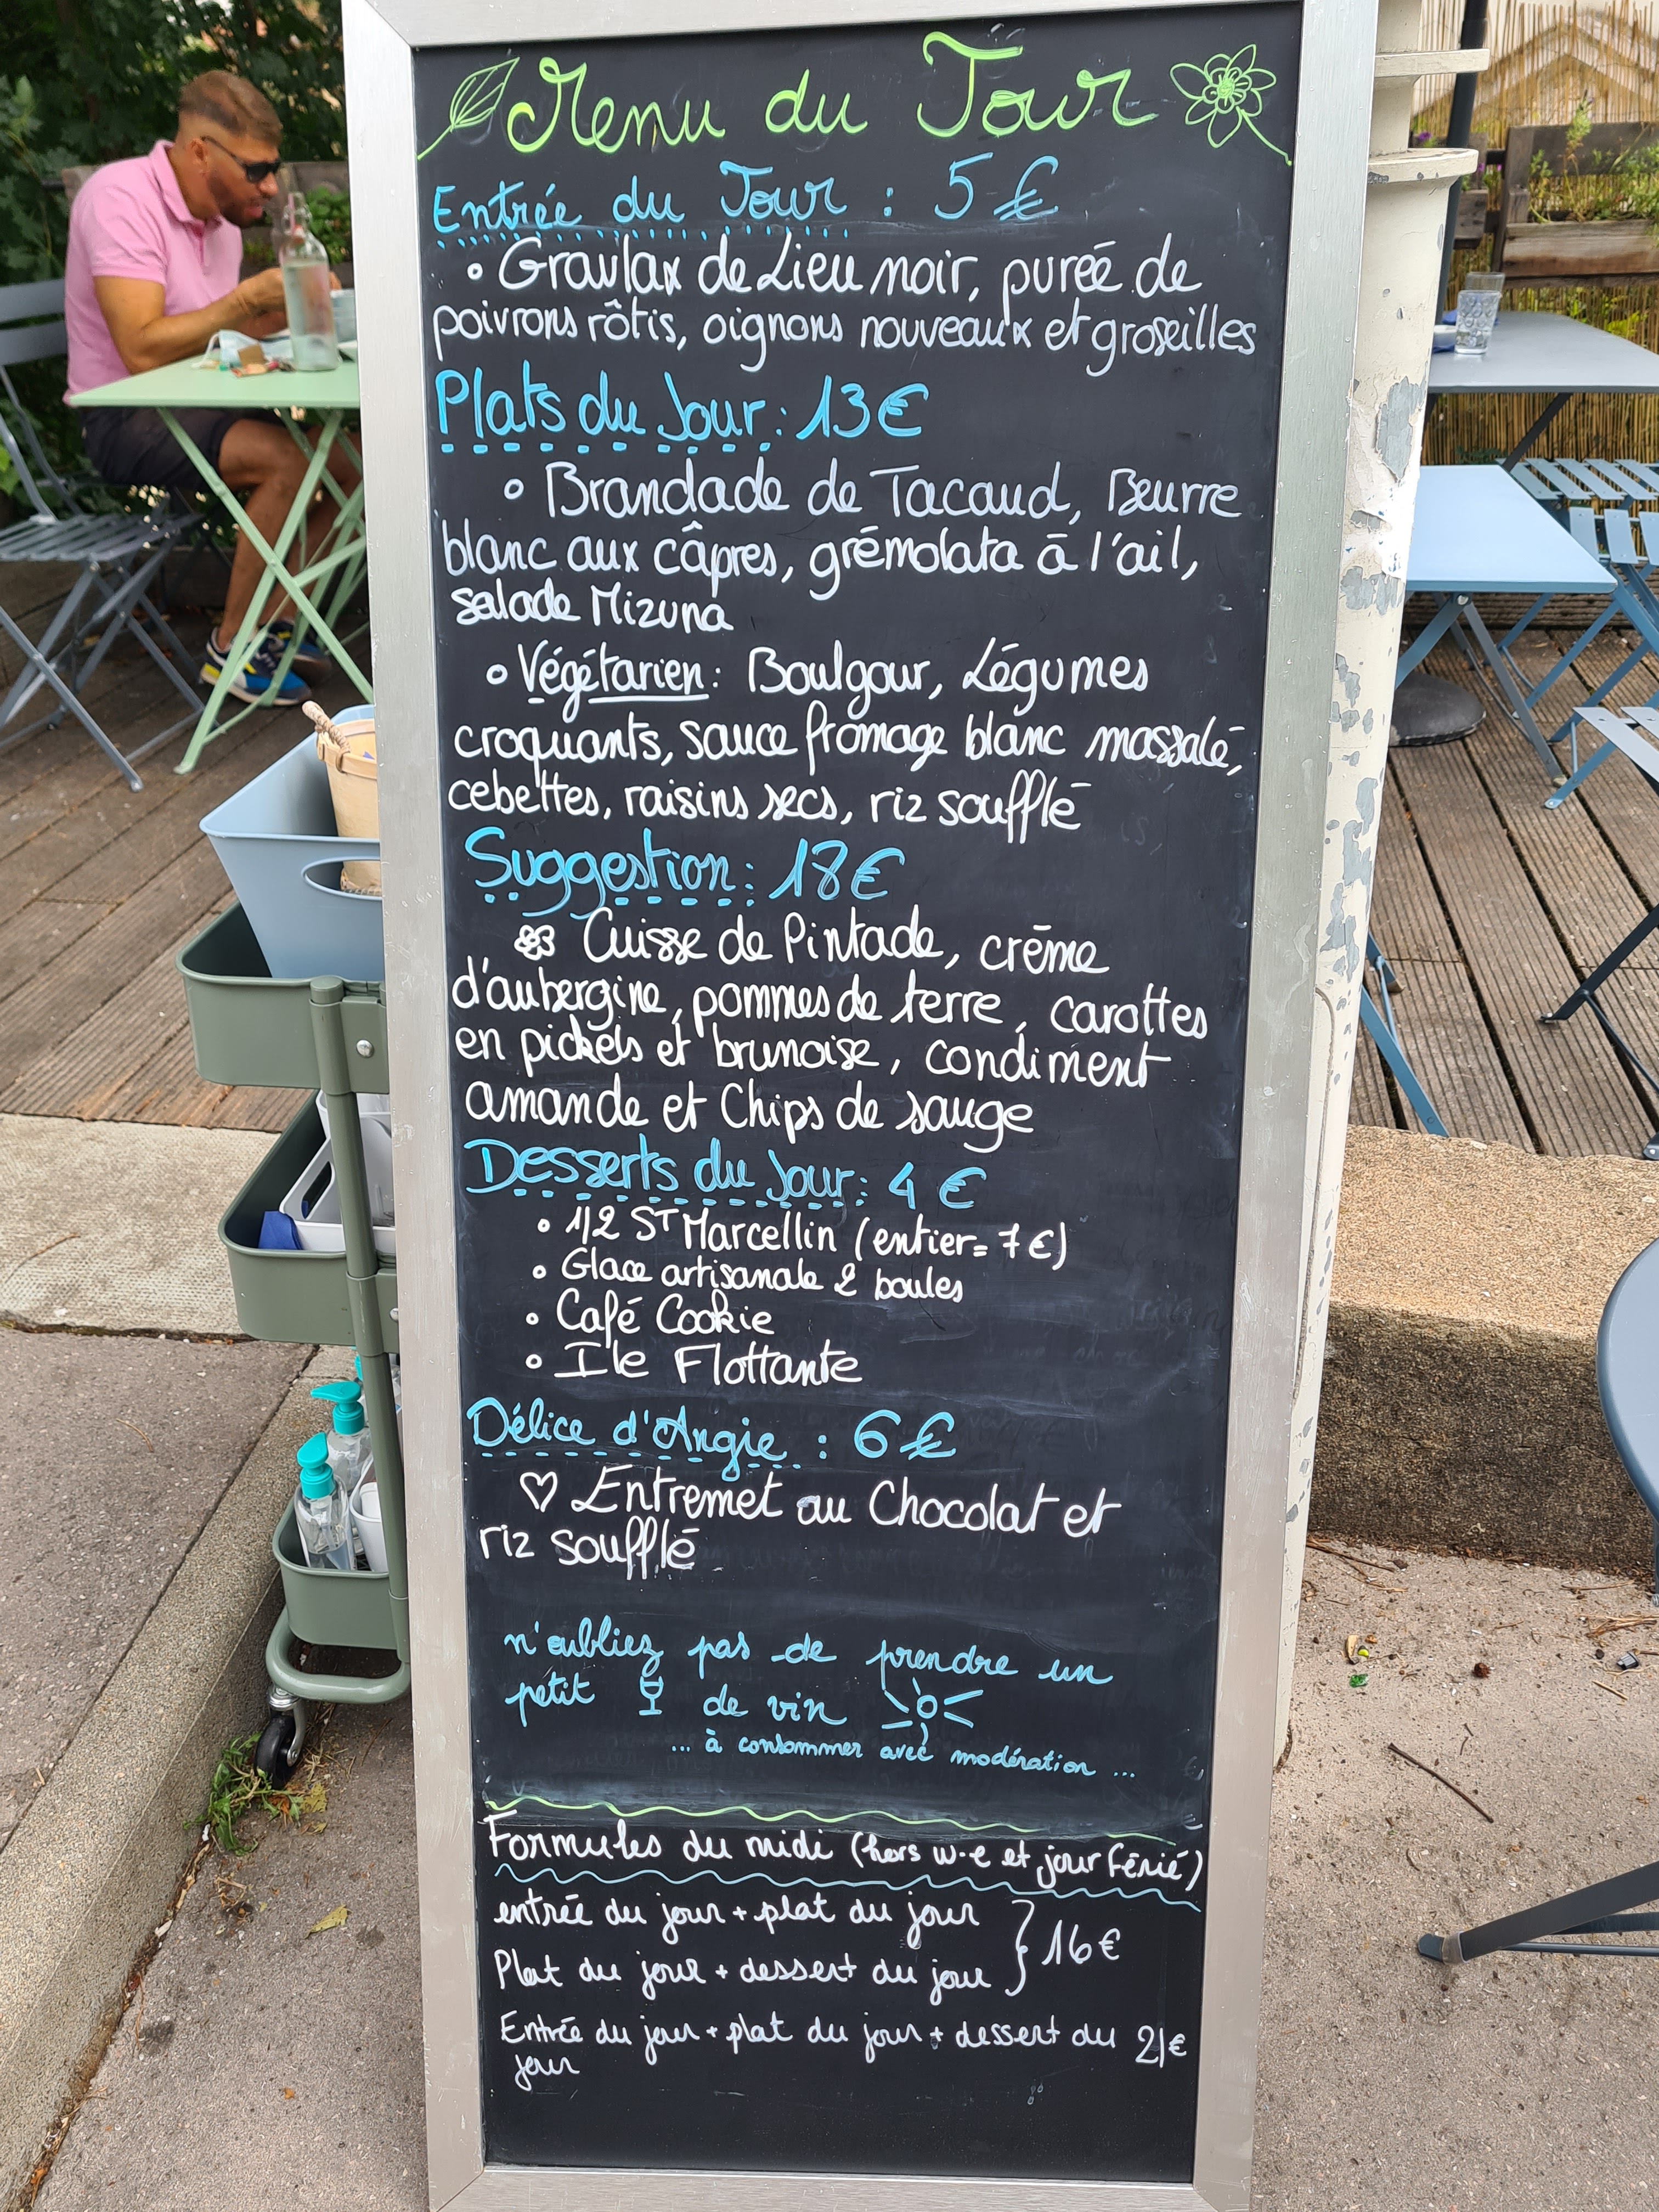 Menu du Jour
Entrée du Jour : 5 €
• Gravlax de Lieu noir, purée de
poivrons rôtis, oignons nouveaux et groseilles
Plats du Jour : 13€
• Brandade de Tacaud, Beurre
blanc aux câpres, grémolata à l'ail,
salade Mizuna
• Végétarien : Boulgour, Légumes
croquants, sauce fromage blanc massalé,
cebettes, raisins secs, riz soufflé
Suggestion : 18€
Cuisse de Pintade, crème
d'aubergine, pommes de terre, carottes
en pickels et brunoise, condiment
amande et Chips de sauge
Desserts du Jour : 4 €
• 1/2 ST Marcellin (entier = 7€)
• Glace artisanale 2 boules
• Café Cookie
• Ile Flottante
Délice d'Angie : 6 €
♡ Entremet au Chocolat et
riz soufflé
n'oubliez pas de prendre un
petit de vin
... à consommer avec modération ...
Formules du midi (hors w-e et jour férié)
entrée du jour + plat du jour
Plat du jour + dessert du jour } 16€
Entrée du jour + plat du jour + dessert du 21€
jour